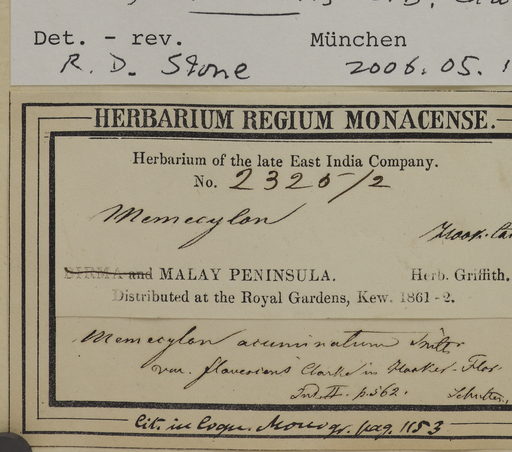 Det. - rev. München
R. D. Stone 2006. 05. 1
HERBARIUM REGIUM MONACENSE.
Herbarium of the late East India Company.
No. 2325/2
Memecylon
Hook.
BIRMA and MALAY PENINSULA. Herb. Griffith.
Distributed at the Royal Gardens, Kew. 1861-2.
Memecylon acuminatum Smith
var. flavescens Clarke in Hooker. Flor.
Ind. II. p. 562.
Cit. in Cogn. Monogr. pag. 1153